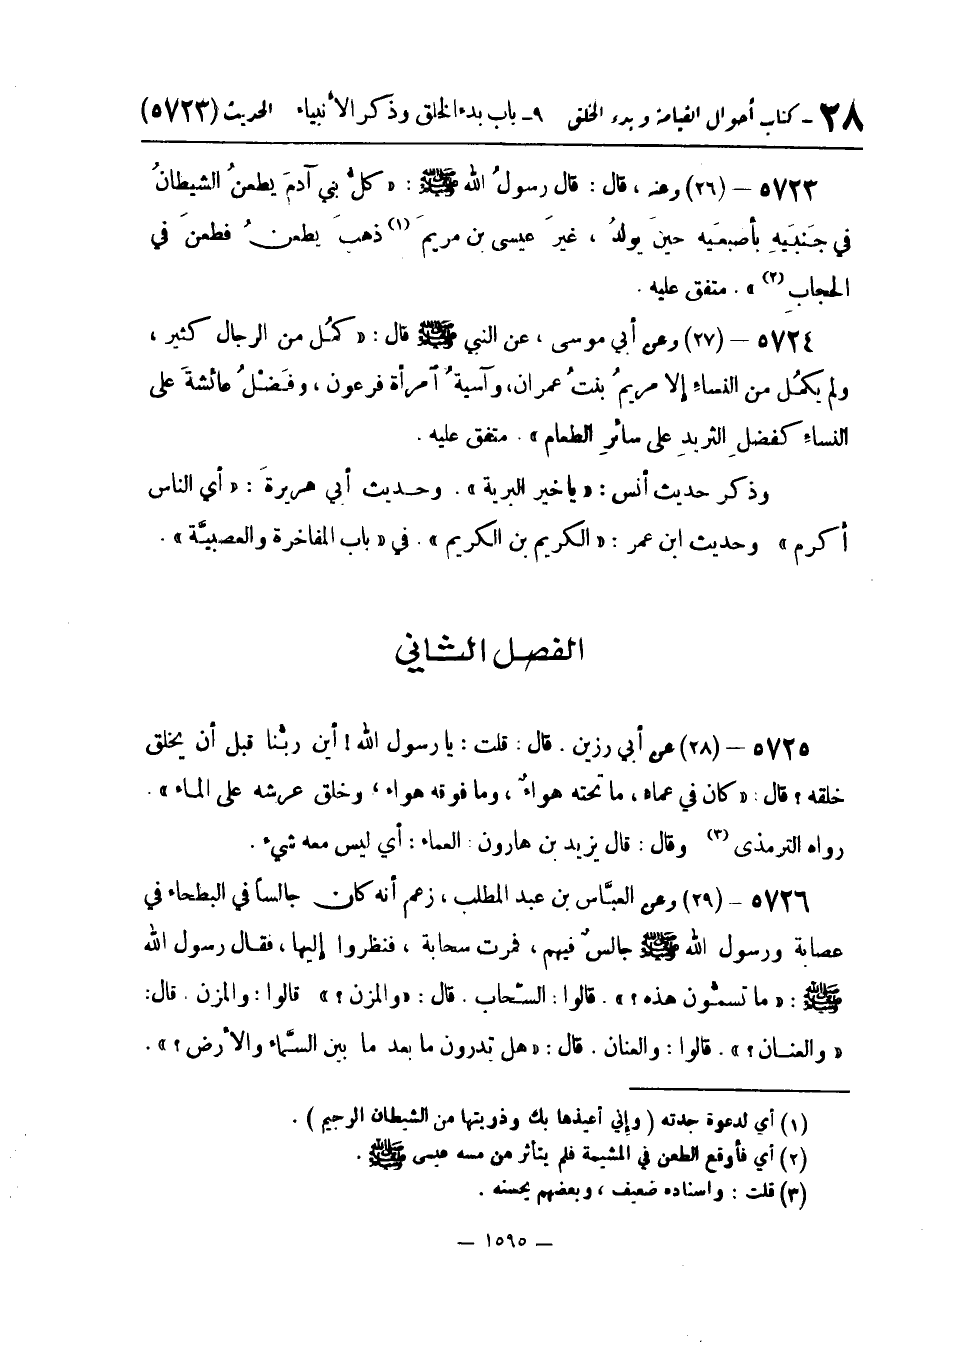 ٢٨ - كتاب أحوال القيامة وبدء الخلق ٩ - باب بدء الخلق وذكر الأنبياء الحديث (٥٧٢٣)
٥٧٢٣ – (٢٦) وعنه ، قال : قال رسولُ الله ﷺ : « كلُّ بني آدمَ يطعنُ الشيطانُ
في جَنبَيهِ بأصبعَيه حينَ يولدُ ، غيرَ عيسى بن مريمَ (١) ذهبَ يطعنُ فطعنَ في
الحجابِ (٢) » . متفق عليه .
٥٧٢٤ – (٢٧) وعن أبي موسى ، عن النبي ﷺ قال : « كمُل من الرجال كثير ،
ولم يكمُل من النساء إلا مريمُ بنتُ عمران، وآسيةُ امرأة فرعون ، وفَضلُ عائشةَ على
النساءِ كفضلِ الثريدِ على سائرِ الطعام » . متفق عليه .
وذكر حديث أنس : « يا خير البرية » . وحديث أبي هريرةَ : « أي الناس
أكرم » وحديث ابن عمر : « الكريم بن الكريم » . في « باب المفاخرة والعصبيَّة » .
الفصل الثاني
٥٧٢٥ – (٢٨) عن أبي رزين . قال : قلت : يا رسول الله ! أين ربُّنا قبل أن يخلق
خلقه ؟ قال : « كان في عماء ، ما تحته هواءٌ ، وما فوقه هواء ، وخلق عرشه على الماء » .
رواه الترمذي (٣) وقال : قال يزيد بن هارون : العماء : أي ليس معه شيء .
٥٧٢٦ – (٢٩) وعن العبَّاس بن عبد المطلب ، زعم أنه كان جالساً في البطحاء في
عصابة ورسول الله ﷺ جالسٌ فيهم ، فمرت سحابة ، فنظروا إليها ، فقال رسول الله
ﷺ : « ما تسمُّون هذه ؟ » . قالوا : السَّحاب . قال : « والمزن ؟ » قالوا : والمزن . قال :
« والعنان ؟ » . قالوا : والعنان . قال : « هل تدرون ما بعد ما بين السَّماء والأرض ؟ » .
(١) أي لدعوة جدته ( وإني أعيذها بك وذريتها من الشيطان الرجيم ) .
(٢) أي فأوقع الطعن في المشيمة فلم يتأثر من مسه عيسى ﷺ .
(٣) قلت : واسناده ضعيف ، وبعضهم يحسنه .
– ١٥٩٥ –